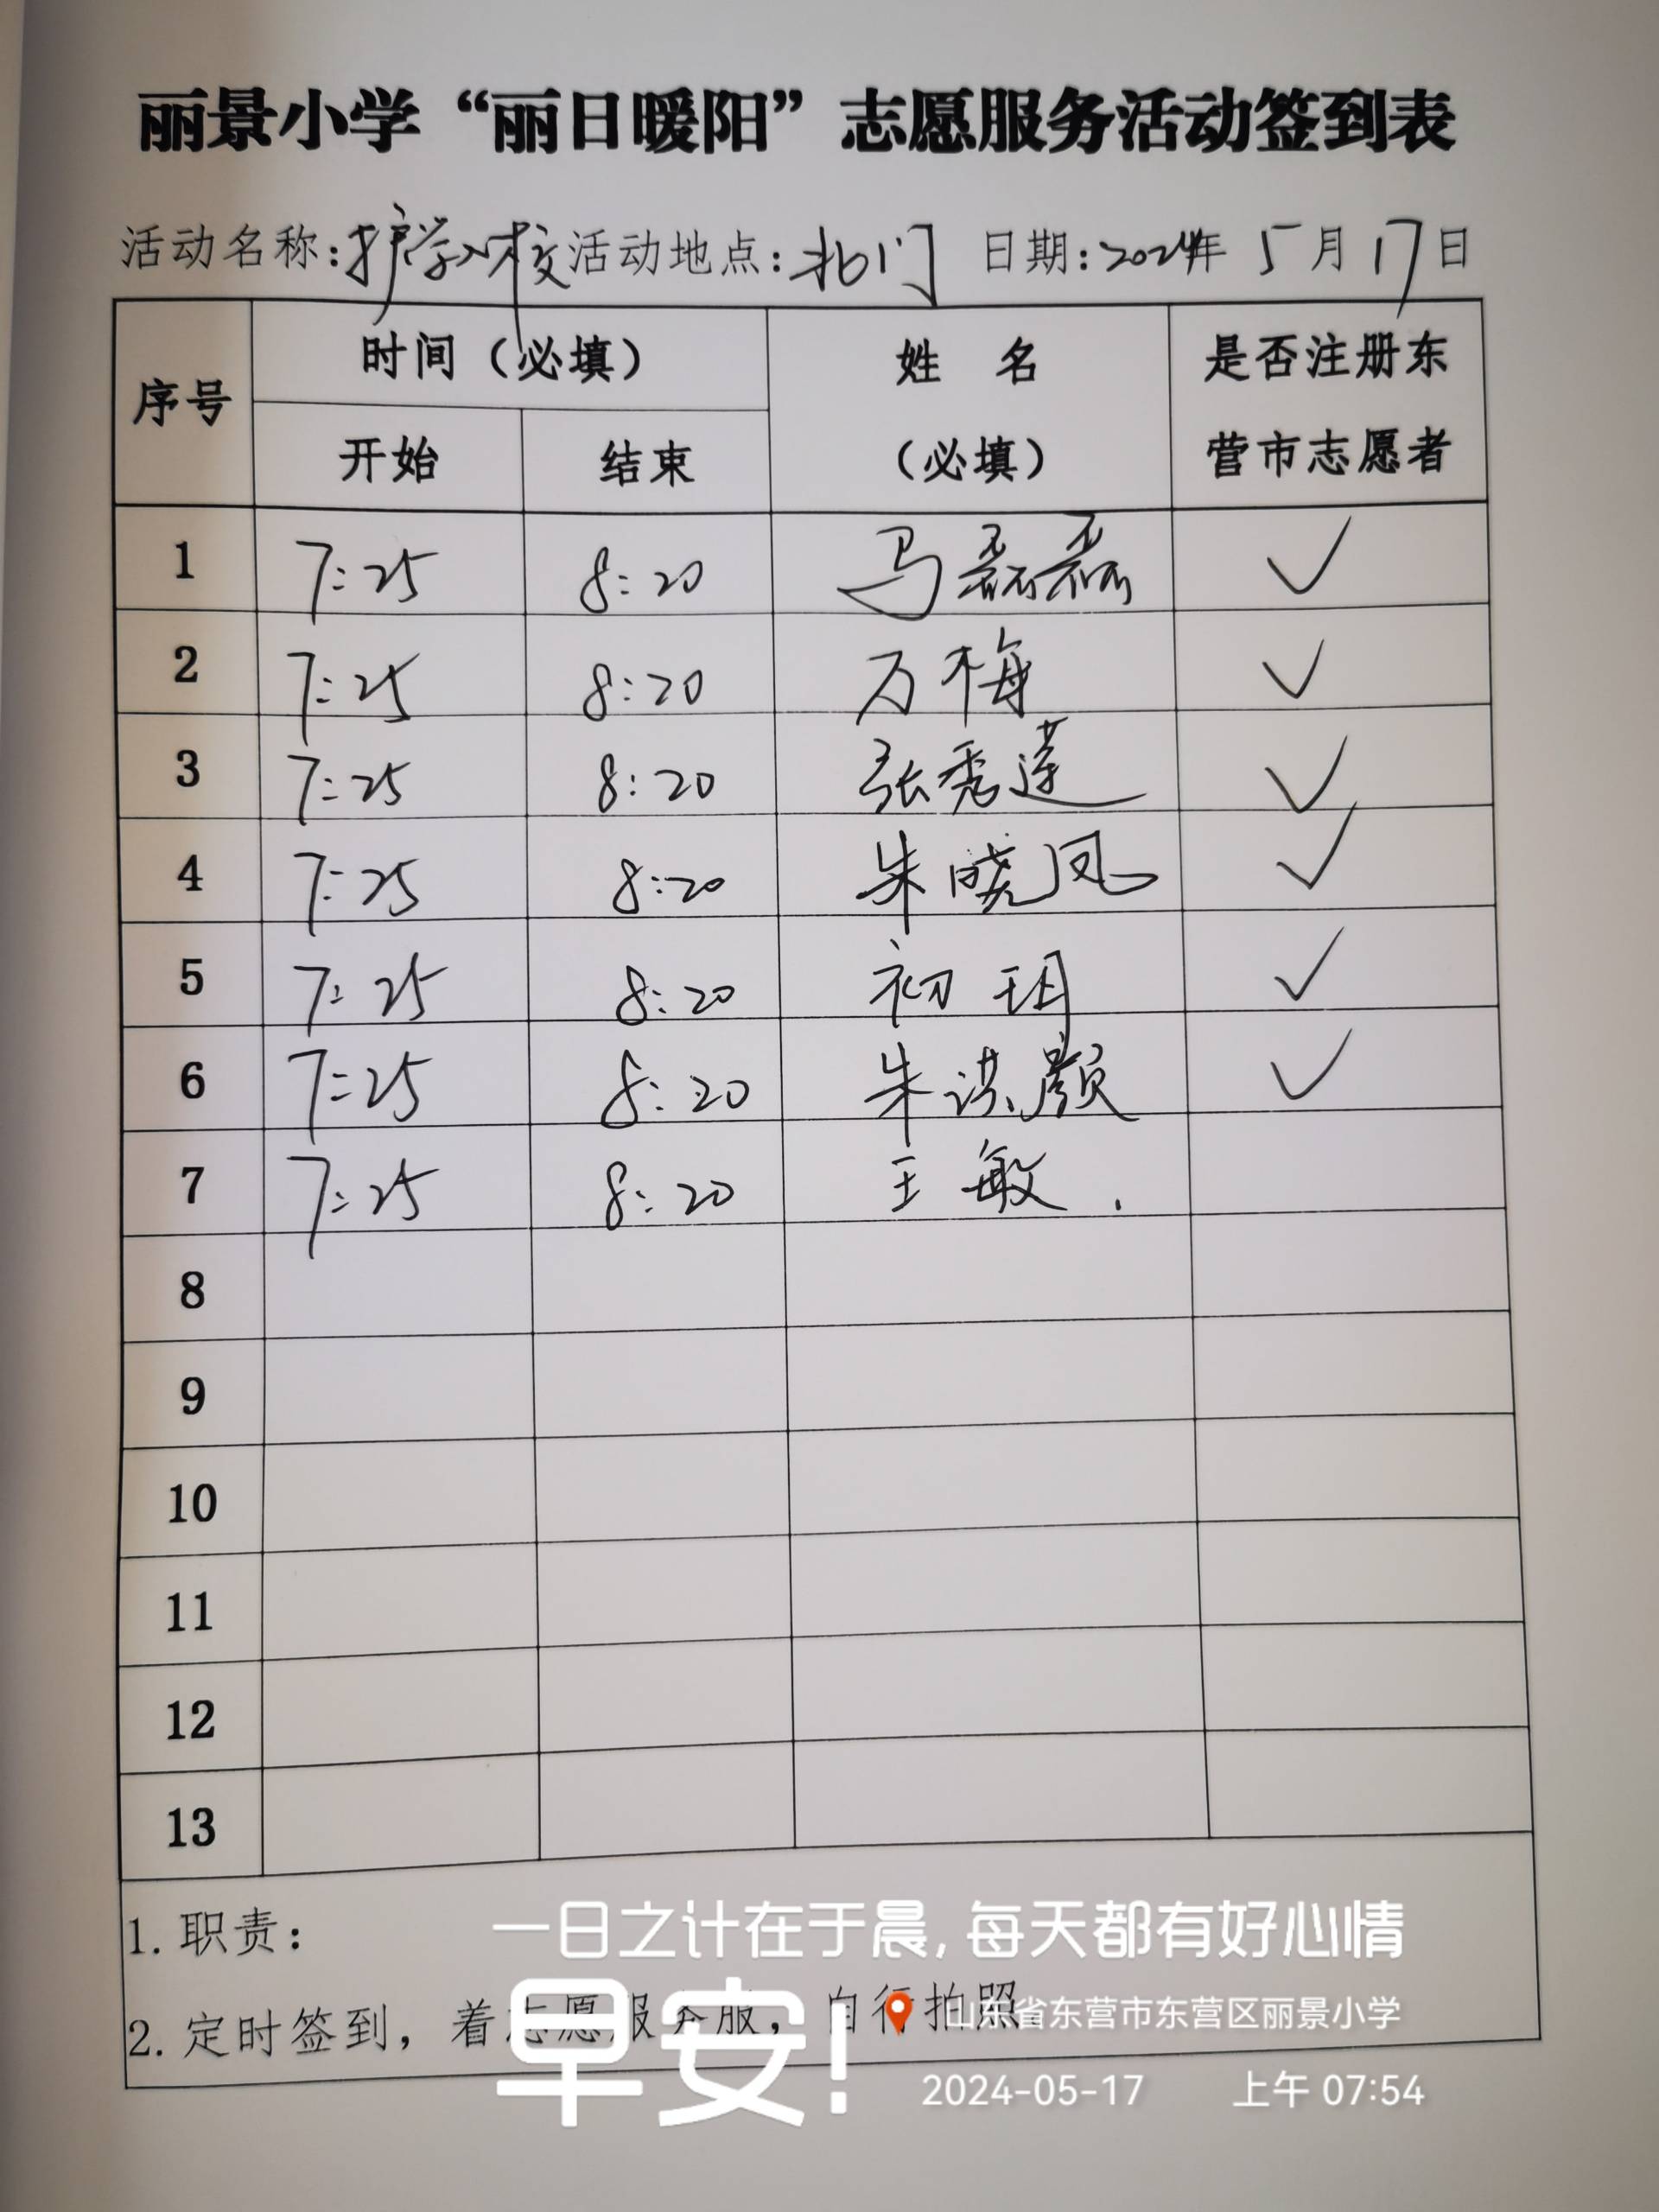 丽景小学“丽日暖阳”志愿服务活动签到表
活动名称:护学入校 活动地点:北门 日期:2024年 5月17日
序号 时间（必填） 姓 名 是否注册东
开始 结束 （必填） 营市志愿者
1 7:25 8:20 马磊磊 ✓
2 7:25 8:20 万梅 ✓
3 7:25 8:20 张秀莲 ✓
4 7:25 8:20 朱晓凤 ✓
5 7:25 8:20 初玥 ✓
6 7:25 8:20 朱洪颜 ✓
7 7:25 8:20 王敏
8
9
10
11
12
13
1.职责：
一日之计在于晨,每天都有好心情
2.定时签到，着志愿服务服，自行拍照
早安!
山东省东营市东营区丽景小学
2024-05-17 上午 07:54